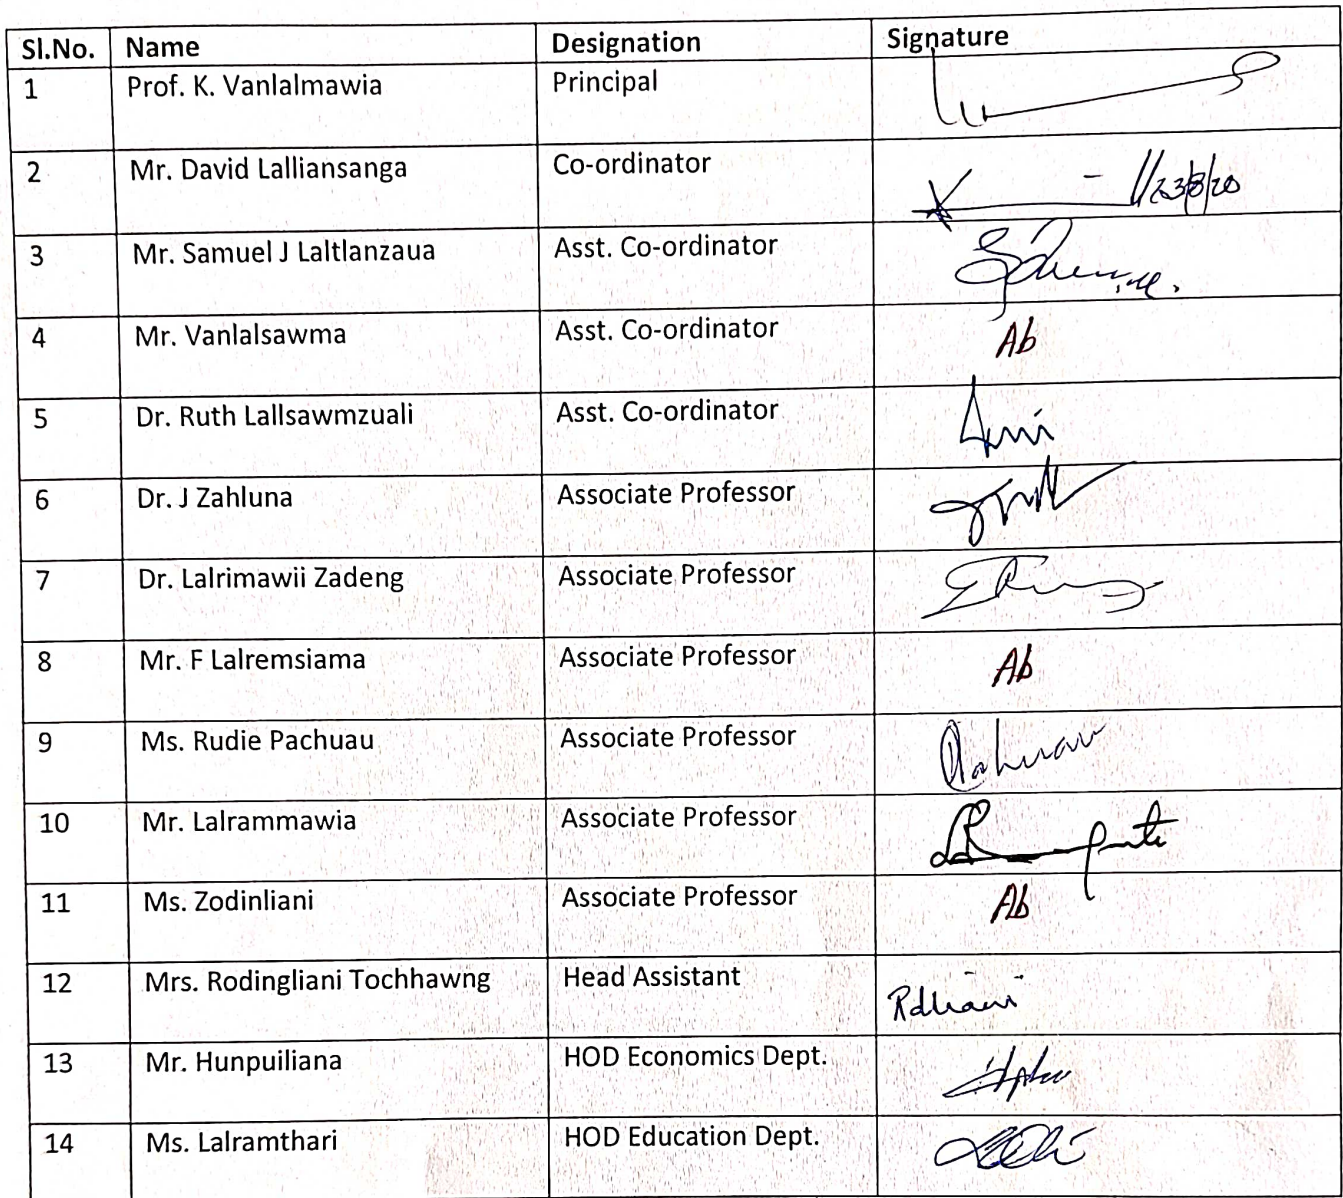 Sl.No. Name Designation Signature
1 Prof. K. Vanlalmawia Principal
2 Mr. David Lalliansanga Co-ordinator 23/8/20
3 Mr. Samuel J Laltlanzaua Asst. Co-ordinator
4 Mr. Vanlalsawma Asst. Co-ordinator Ab
5 Dr. Ruth Lallsawmzuali Asst. Co-ordinator
6 Dr. J Zahluna Associate Professor
7 Dr. Lalrimawii Zadeng Associate Professor
8 Mr. F Lalremsiama Associate Professor Ab
9 Ms. Rudie Pachuau Associate Professor
10 Mr. Lalrammawia Associate Professor
11 Ms. Zodinliani Associate Professor Ab
12 Mrs. Rodingliani Tochhawng Head Assistant
13 Mr. Hunpuiliana HOD Economics Dept.
14 Ms. Lalramthari HOD Education Dept.